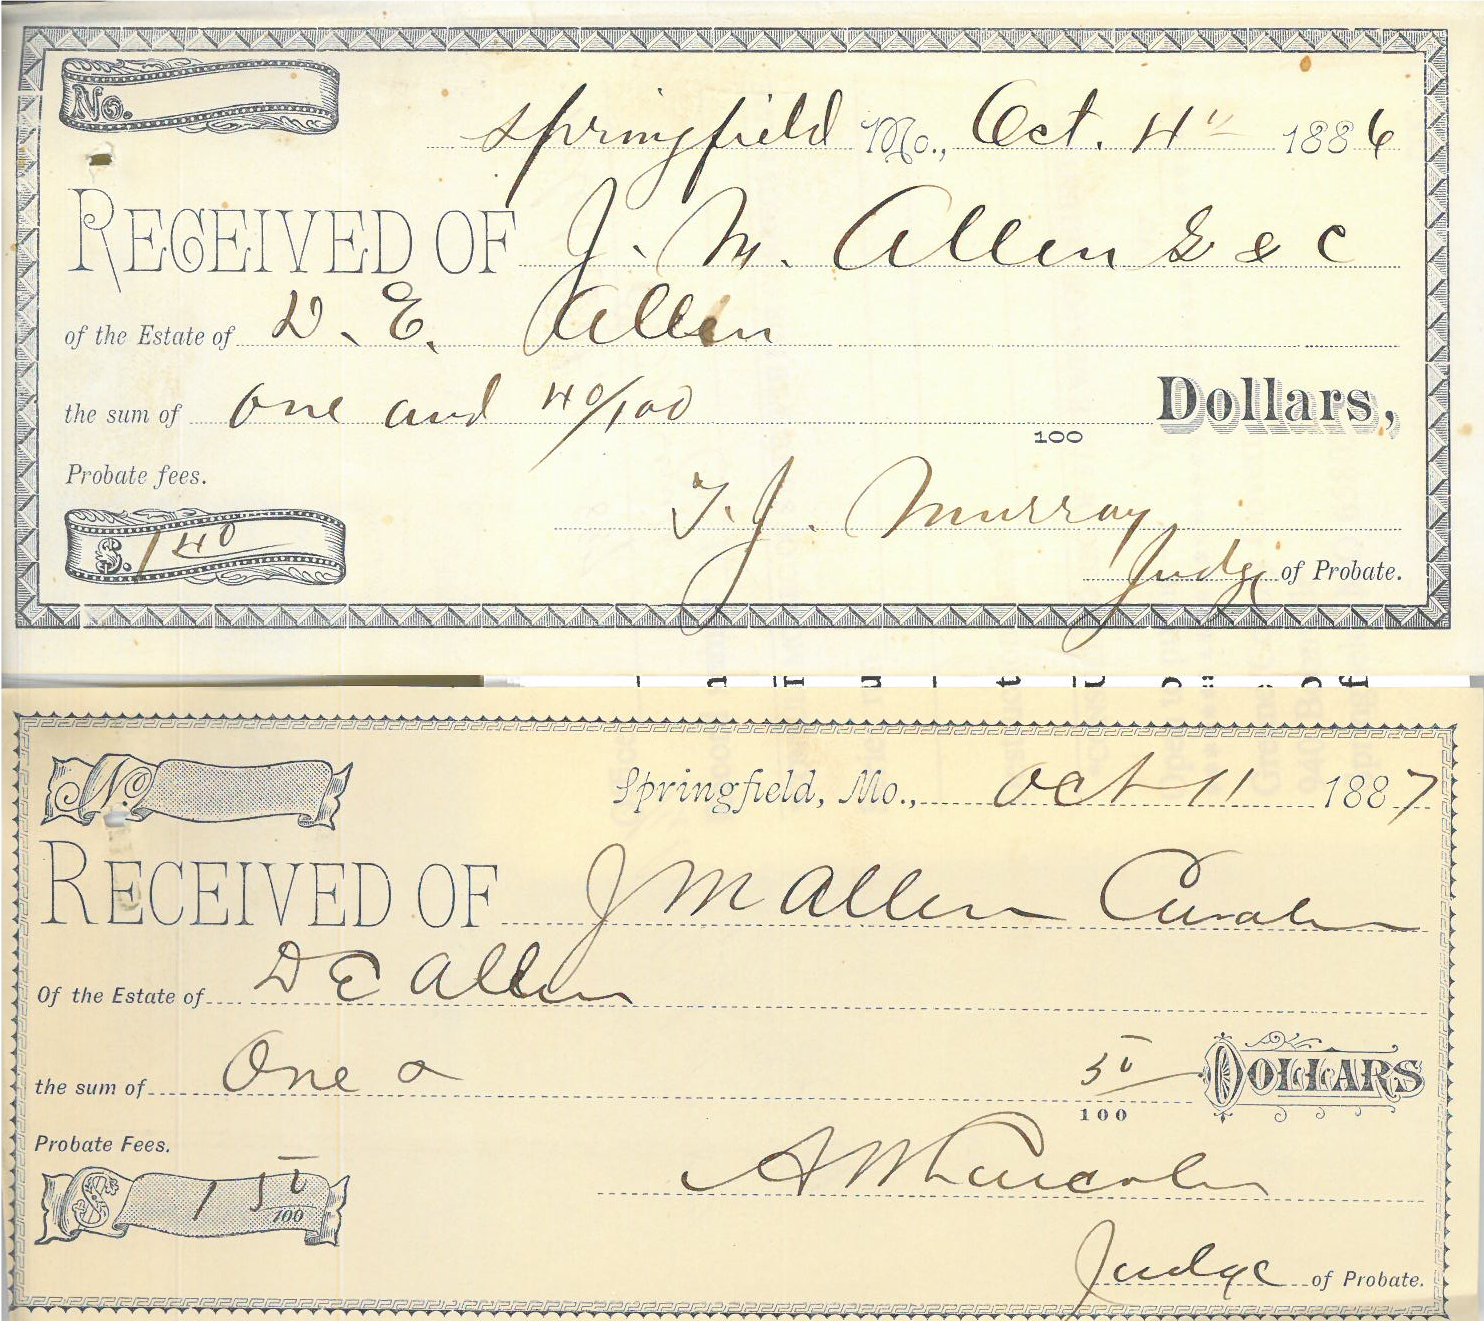 No.
Springfield Mo., Oct. 4" 1886
RECEIVED OF J. M. Allen G & C
of the Estate of D. E. Allen
the sum of One and 40/100 Dollars,
100
Probate fees.
T. J. Murray
$. 1 40
Judge of Probate.
No.
Springfield, Mo., Oct 11 1887
RECEIVED OF J M Allen Curator
Of the Estate of D E Allen
the sum of One & 50/100 DOLLARS
Probate Fees.
A W Lincoln
$ 1 50/100
Judge of Probate.